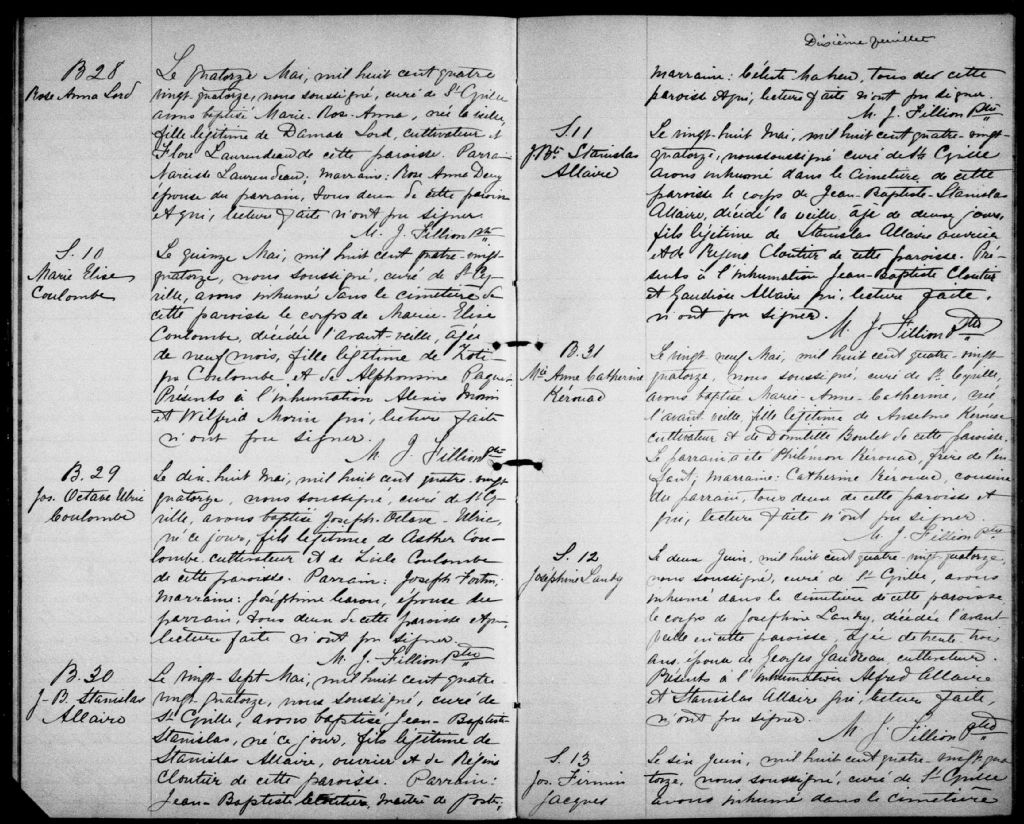 B 28
Rose Anna Lord
Le quatorze Mai, mil huit cent quatre
vingt-quatorze, nous soussigné, curé de St Cyrille
avons baptisé Marie-Rose-Anna, née la veille,
fille légitime de Damase Lord, cultivateur et
Flore Laurendeau de cette paroisse. Parrain
Narcisse Laurendeau; marraine: Rose Anne
épouse du parrain, tous deux de cette paroisse
et qui, lecture faite n'ont pu signer
M. J. Fillion Ptre
S. 10
Marie Elise
Coulombe
Le quinze Mai, mil huit cent quatre-vingt
quatorze, nous soussigné, curé de St Cy-
rille, avons inhumé dans le cimetière de
cette paroisse le corps de Marie-Elise
Coulombe, décédée l'avant-veille, âgée
de neuf mois, fille légitime de Zoti-
que Coulombe et de Alphonsine Paquet
Présents à l'inhumation Alexis Morin
et Wilfrid Morin qui, lecture faite
n'ont pu signer.
M. J. Fillion Ptre
B. 29
Jos. Octave Ulric
Coulombe
Le dix-huit Mai, mil huit cent quatre-vingt
quatorze, nous soussigné, curé de St Cy-
rille, avons baptisé Joseph-Octave-Ulric,
né ce jour, fils légitime de Cou-
lombe cultivateur et de Coulombe
de cette paroisse. Parrain: Joseph Fortin;
Marraine: Joséphine Caron, épouse du
parrain, tous deux de cette paroisse et qui,
lecture faite n'ont pu signer.
M. J. Fillion Ptre
B. 30
J-B. Stanislas
Allaire
Le vingt-sept Mai, mil huit cent quatre
vingt-quatorze, nous soussigné, curé de
St Cyrille, avons baptisé, Jean-Baptiste
Stanislas, né ce jour, fils légitime de
Stanislas Allaire, ouvrier et de Régina
Cloutier de cette paroisse. Parrain:
Jean-Baptiste Cloutier, maître de poste;
Dixième feuillet
marraine: Céleste Maheu, tous deux de cette
paroisse et qui, lecture faite n'ont pu signer.
M. J. Fillion Ptre
S. 11
J. Bte Stanislas
Allaire
Le vingt-huit Mai, mil huit cent quatre-vingt-
quatorze, nous soussigné curé de St Cyrille
avons inhumé dans le cimetière de cette
paroisse le corps de Jean-Baptiste-Stanislas
Allaire, décédé la veille âgé de deux jours,
fils légitime de Stanislas Allaire ouvrier
et de Régina Cloutier de cette paroisse. Pré-
sents à l'inhumation Jean-Baptiste Cloutier
et Gaudiose Allaire qui, lecture faite,
n'ont pu signer.
M. J. Fillion Ptre
B. 31
Mie Anne Catherine
Kérouac
Le vingt neuf Mai, mil huit cent quatre-vingt
quatorze, nous soussigné, curé de St Cyrille,
avons baptisé Marie-Anne-Catherine, née
l'avant veille fille légitime de Anselme Kérouac
cultivateur et de Domitille Boulet de cette paroisse.
Le parrain a été Philémon Kérouac, frère de l'en-
fant; marraine: Catherine Kérouac, cousine
du parrain, tous deux de cette paroisse et
qui, lecture faite n'ont pu signer.
M. J. Fillion Ptre
S. 12
Joséphine Landry
Le deux Juin, mil huit cent quatre-vingt-quatorze,
nous soussigné, curé de St Cyrille, avons
inhumé dans le cimetière de cette paroisse,
le corps de Joséphine Landry, décédée l'avant
veille en cette paroisse, âgée de trente trois
ans, épouse de Georges Gaudreau, cultivateur.
Présents à l'inhumation Alfred Allaire
et Stanislas Allaire qui, lecture faite,
n'ont pu signer.
M. J. Fillion Ptre
S. 13
Jos. Firmin
Jacques
Le six Juin, mil huit cent quatre-vingt-qua-
torze, nous soussigné, curé de St Cyrille
avons inhumé dans le cimetière